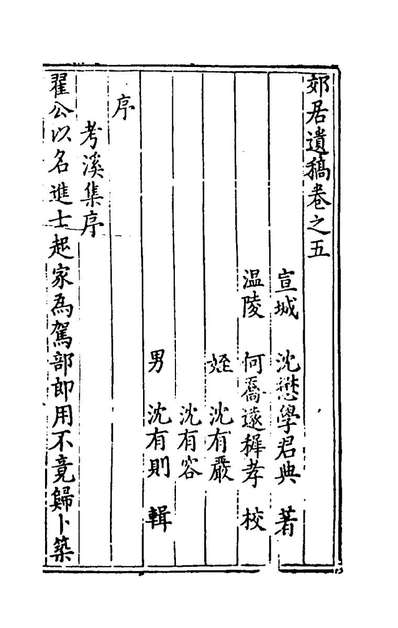 郊居遺稿卷之五
宣城 沈懋學君典 著
温陵 何喬遠穉孝 校
姪 沈有嚴
沈有容
男 沈有則 輯
序
考溪集序
翟公以名進士起家為駕部郎用不竟歸卜築